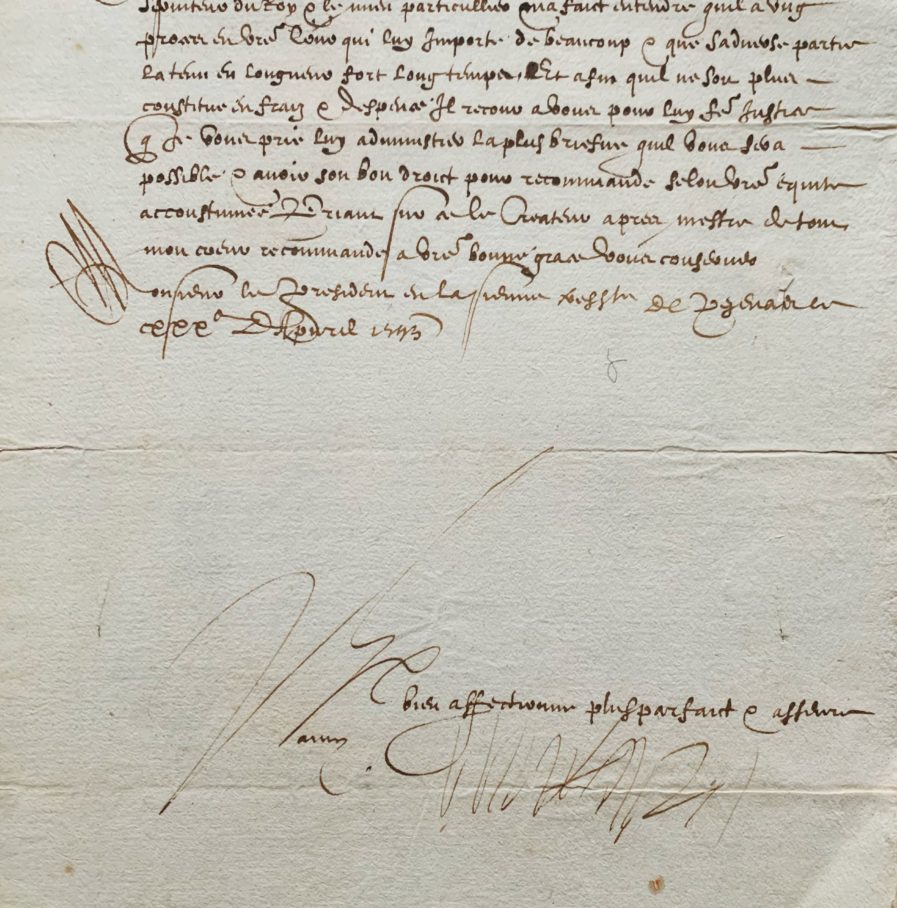 serviteur du Roy & le mien particullier m'a faict entendre quil a ung
proces en vre Court qui luy Importe de beaucoup & que sadverse partie
la tenu en longueur fort long temps. Et afin quil ne soit plus
constitue en fraiz & despence Il recour a vous pour luy fe Justice
q Je vous prie luy administrer la plus briefve quil vous sera
possible & avoir son bon droict pour recommandé selon vre equite
accoustumée Priant sur ce le Createur apres mestre de tout
mon coeur recommande a vre bonne grace vous conserver
Monsieur le President en la sienne de ce
xxxe D Apvril 1593
Vre bien affectionne plus parfaict & asseure
amy